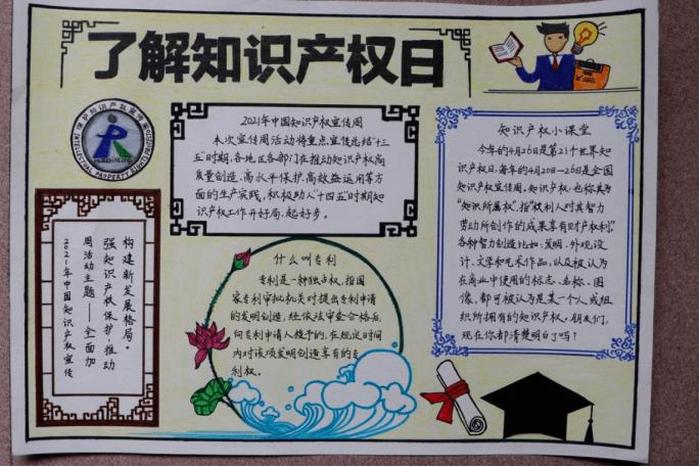 了解知识产权日
保护知识产权
INTELLECTUAL PROPERTY RIGHTS
2021年中国知识产权宣传周
本次宣传周活动将重点宣传总结"十三
五"时期,各地区各部门在推动知识产权高
质量创造、高水平保护、高效益运用等方
面的生产实践,积极助入"十四五"时期知
识产权工作开好局、起好步。
知识产权小课堂
今年的4月26日是第21个世界知
识产权日,每年的4月20日—26日是全国
知识产权宣传周。知识产权,也称其为
"知识所属权",指"权利人对其智力
劳动所创作的成果享有财产权利",
各种智力创造比如:发明、外观设
计、文学和艺术作品,以及被认为
在商业中使用的标志、名称、图
像,都可被认为是某一个人或组
织所拥有的知识产权。朋友们,
现在你都清楚明白了吗?
2021年中国知识产权宣传
周活动主题——全面加
强知识产权保护,推动
构建新发展格局。
什么叫专利
专利是一种独占权,指国
家专利审批机关对提出专利申请
的发明创造,经依法审查合格后
向专利申请人授予的,在规定时间
内对该项发明创造享有的专
利权。